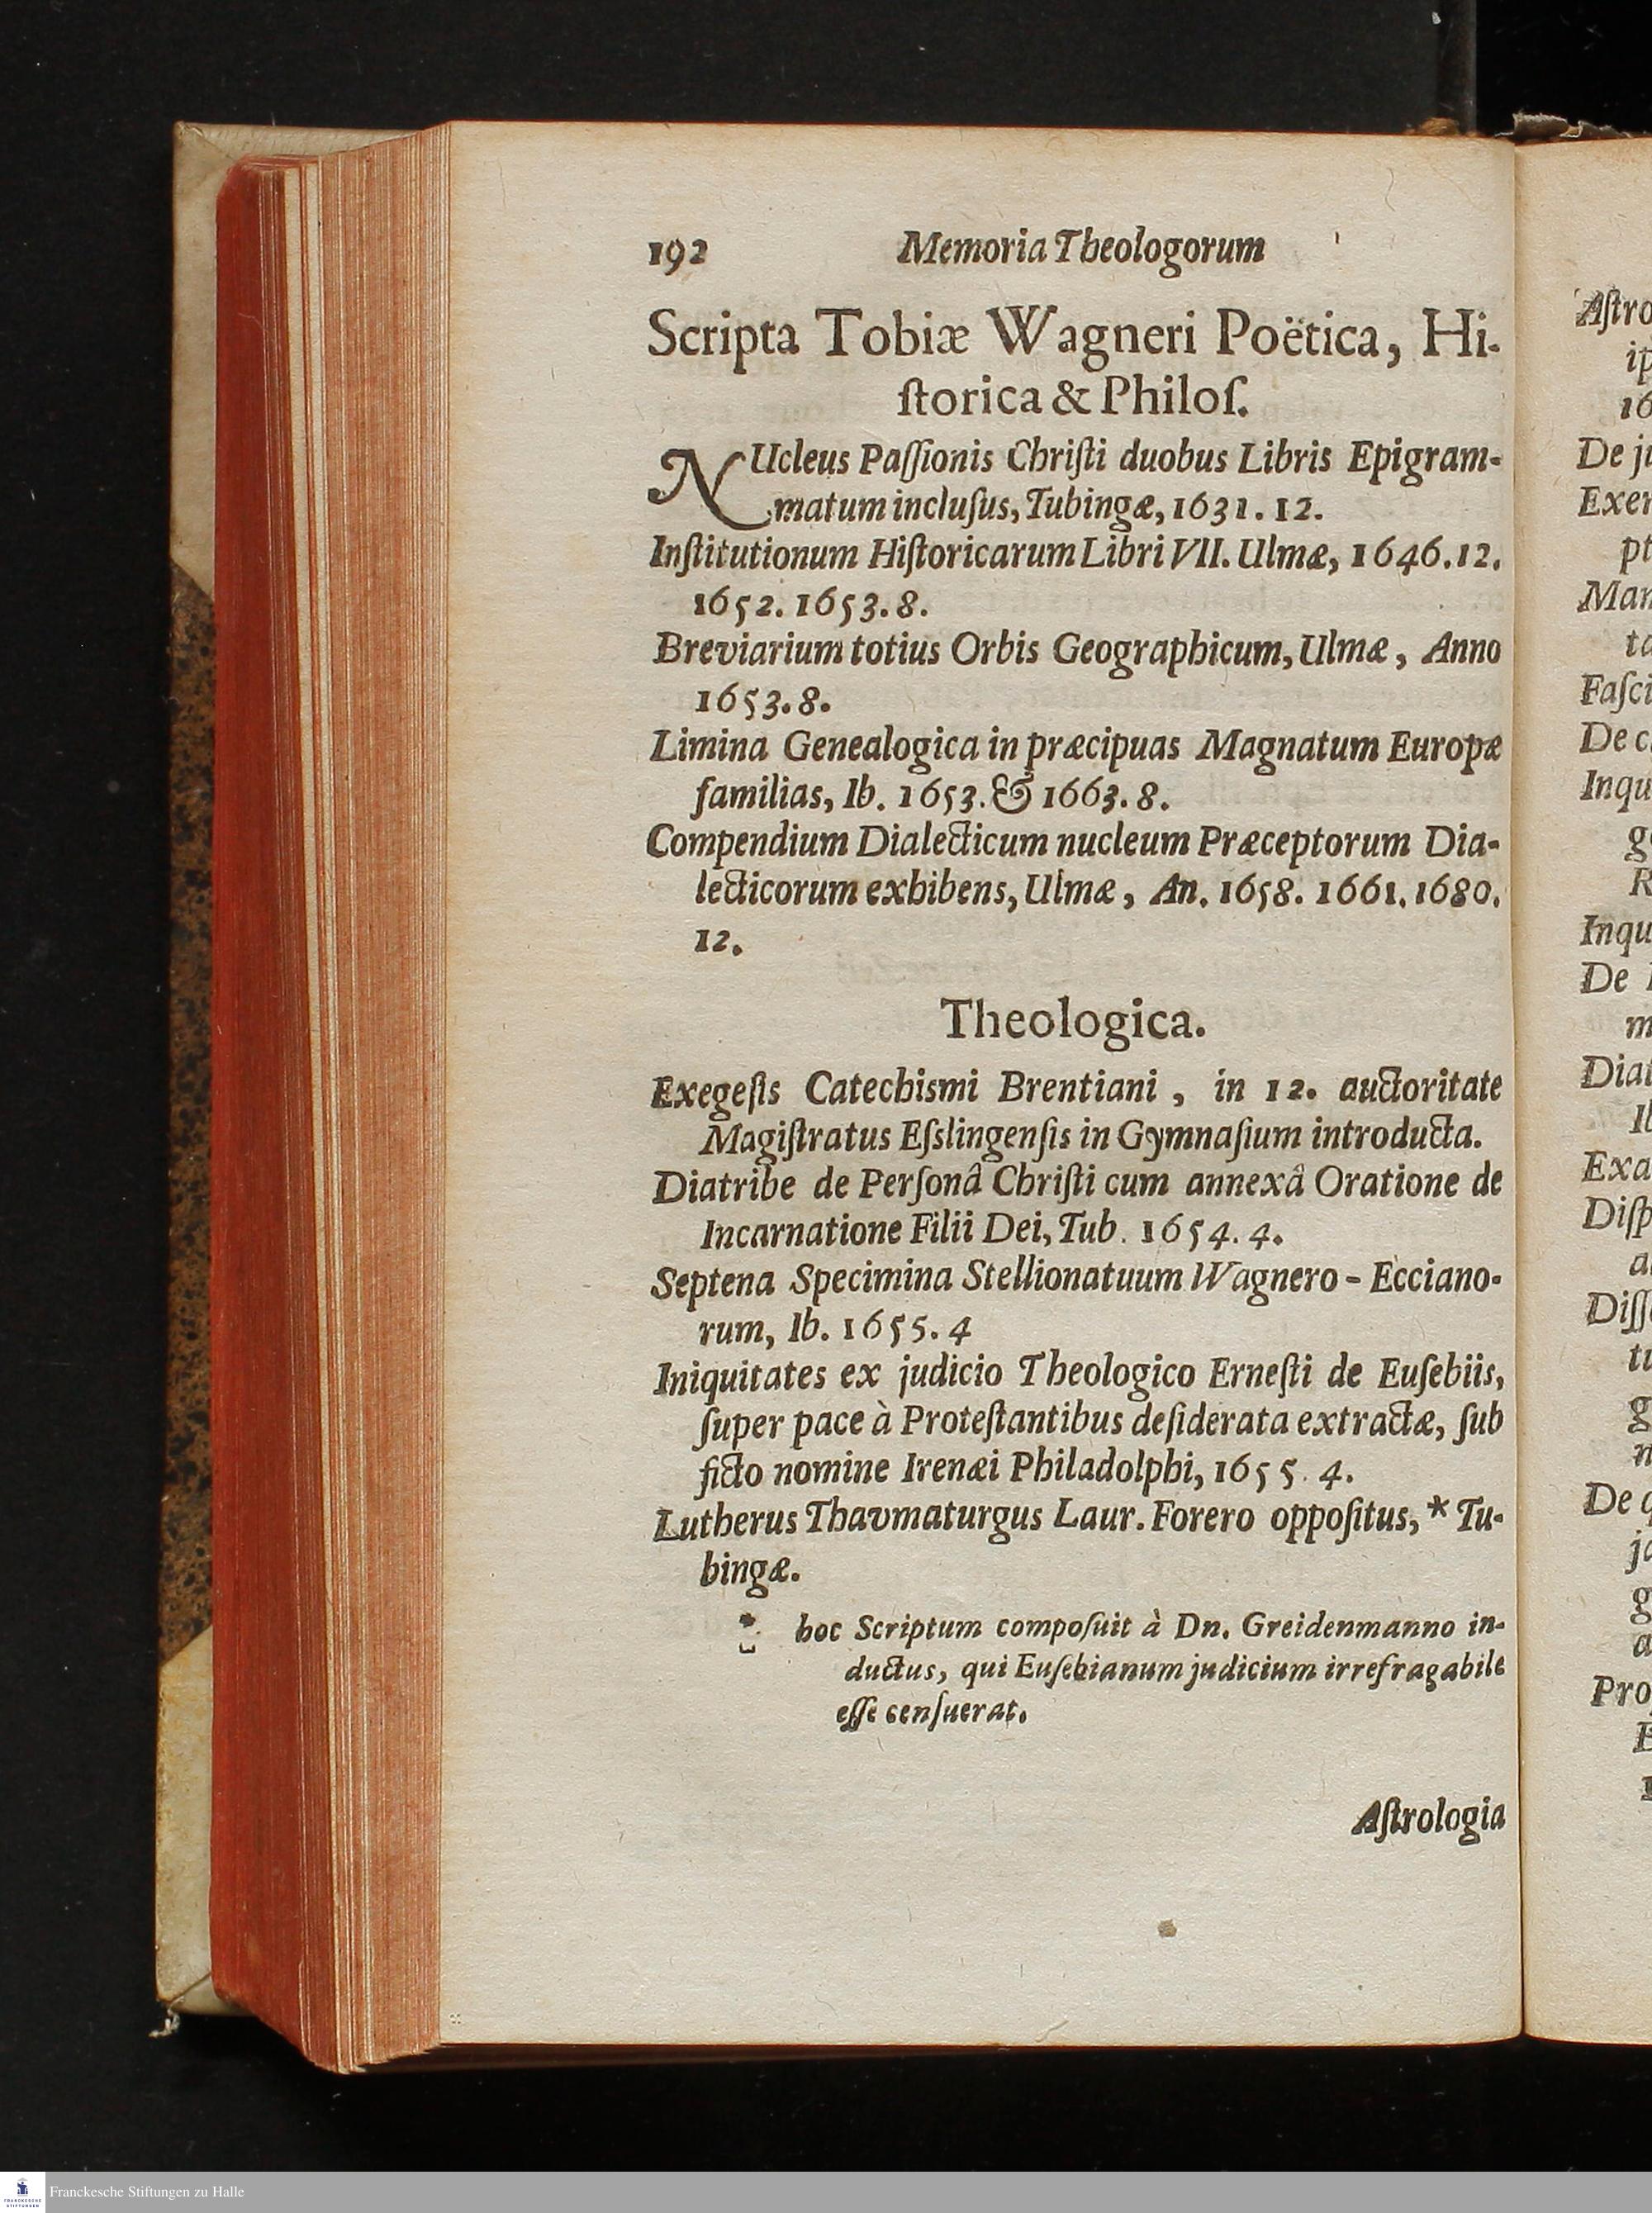 192 Memoria Theologorum
Scripta Tobiæ Wagneri Poëtica, Hi-
ſtorica & Philoſ.
NUcleus Paſſionis Chriſti duobus Libris Epigram-
matum incluſus, Tubingæ, 1631. 12.
Inſtitutionum Hiſtoricarum Libri VII. Ulmæ, 1646. 12.
1652. 1653. 8.
Breviarium totius Orbis Geographicum, Ulmæ, Anno
1653. 8.
Limina Genealogica in præcipuas Magnatum Europæ
familias, Ib. 1653. & 1663. 8.
Compendium Dialecticum nucleum Præceptorum Dia-
lecticorum exhibens, Ulmæ, An. 1658. 1661. 1680.
12.
Theologica.
Exegeſis Catechismi Brentiani, in 12. auctoritate
Magiſtratus Eſslingenſis in Gymnaſium introducta.
Diatribe de Perſonâ Chriſti cum annexâ Oratione de
Incarnatione Filii Dei, Tub. 1654. 4.
Septena Specimina Stellionatuum Wagnero-Ecciano-
rum, Ib. 1655. 4
Iniquitates ex judicio Theologico Erneſti de Euſebiis,
ſuper pace à Proteſtantibus deſiderata extractæ, ſub
ficto nomine Irenæi Philadolphi, 1655. 4.
Lutherus Thavmaturgus Laur. Forero oppoſitus, * Tu-
bingæ.
* hoc Scriptum compoſuit à Dn. Greidenmanno in-
ductus, qui Euſebianum judicium irrefragabile
eſſe cenſuerat.
Aſtrologia
Aſtro
ip
16
De ju
Exer
pt
Man
ta
Faſci
De c
Inqu
ge
R
Inqu
De
m
Diat
Ib
Exa
Diſp
a
Diſſ
tu
g
n
De q
ja
g
a
Pro
E
1
Franckesche Stiftungen zu Halle